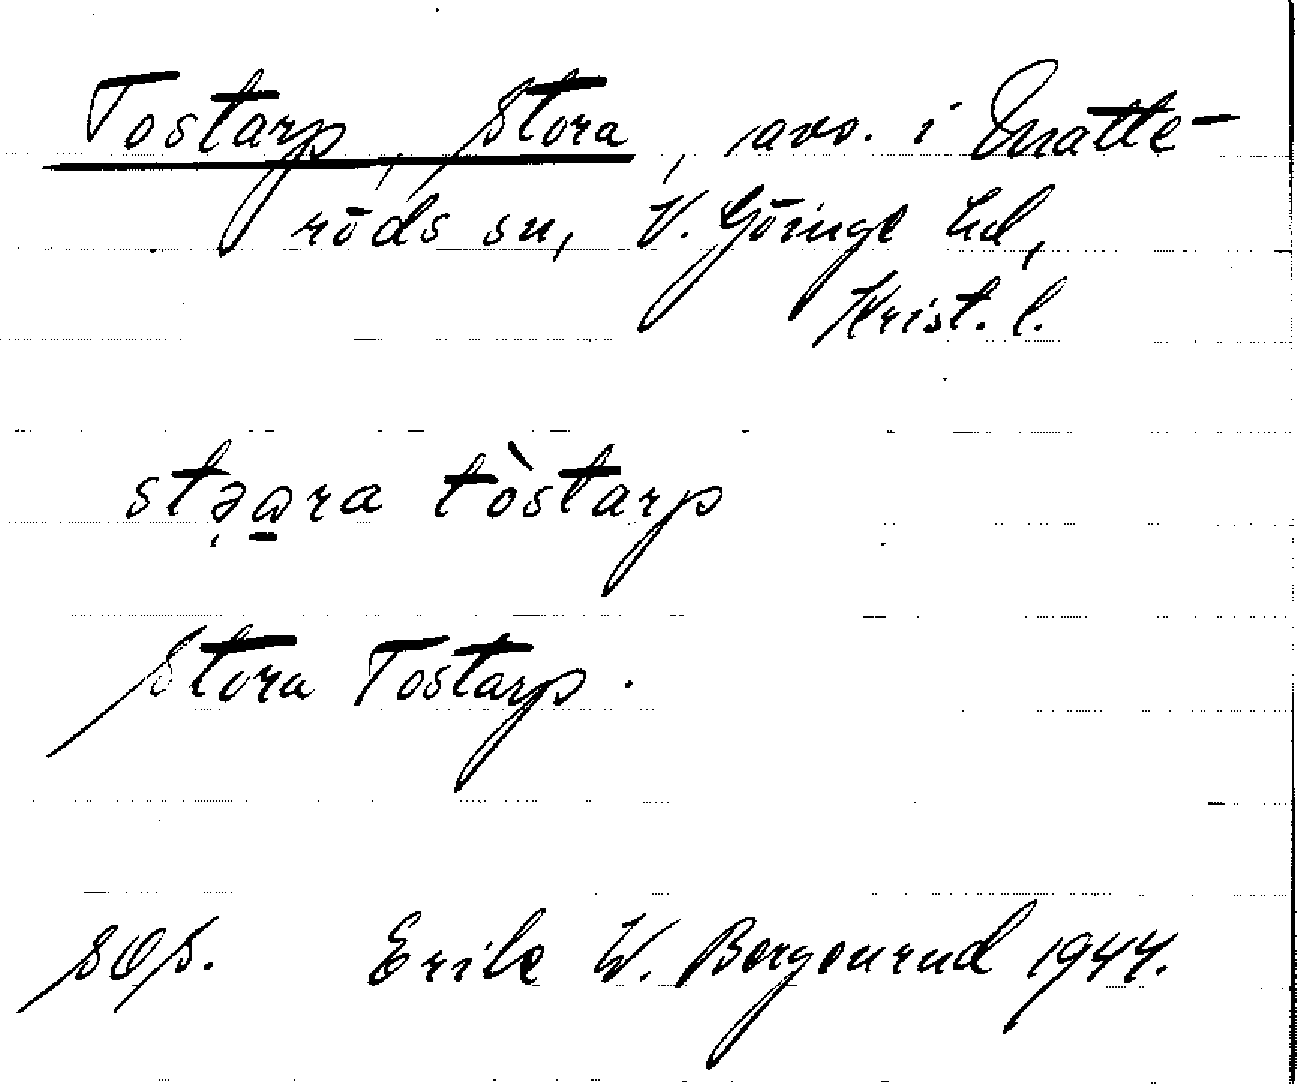 Tostarp, Stora, avs. i Matte-
röds sn, V. Göinge hd,
Krist. l.
stə̣ɷ̱ra tòstarp
Stora Tostarp.
SOS. Erik W. Bergenrud 1944.